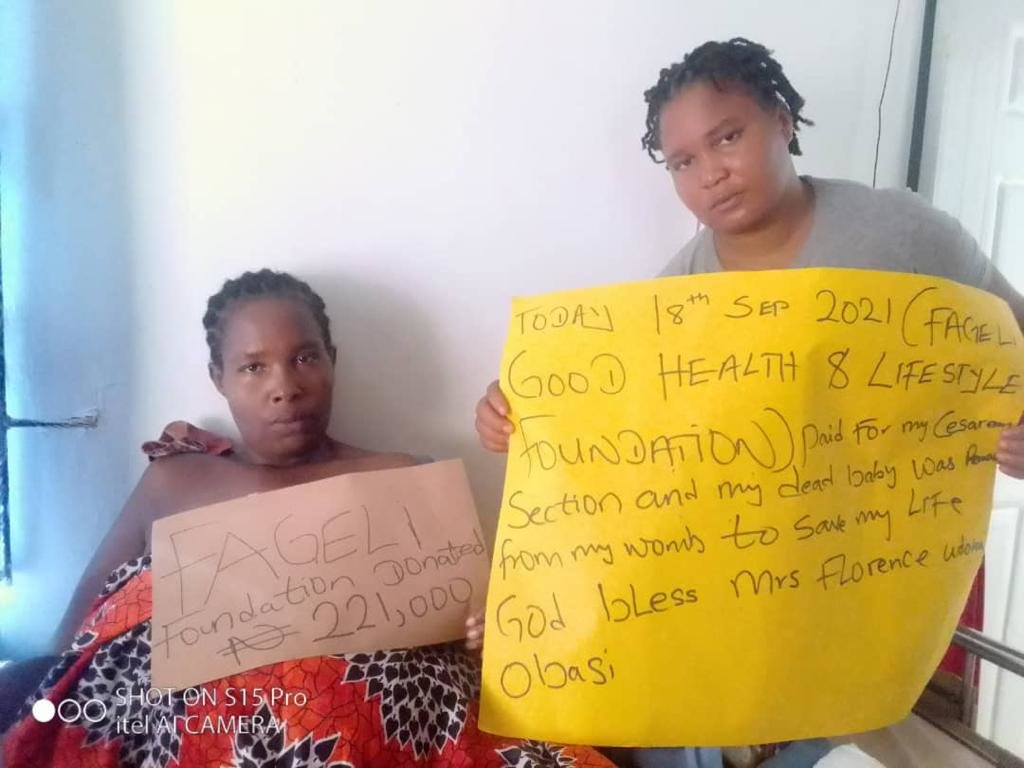 TODAY 18th SEP 2021 (FAGELI
GOOD HEALTH & LIFESTYLE
FOUNDATION) paid for my Cesarean
Section and my dead baby was
from my womb to save my Life
God bless Mrs Florence
Obasi
FAGELI
Foundation Donated
₦ 221,000
SHOT ON S15 Pro
itel AI CAMERA